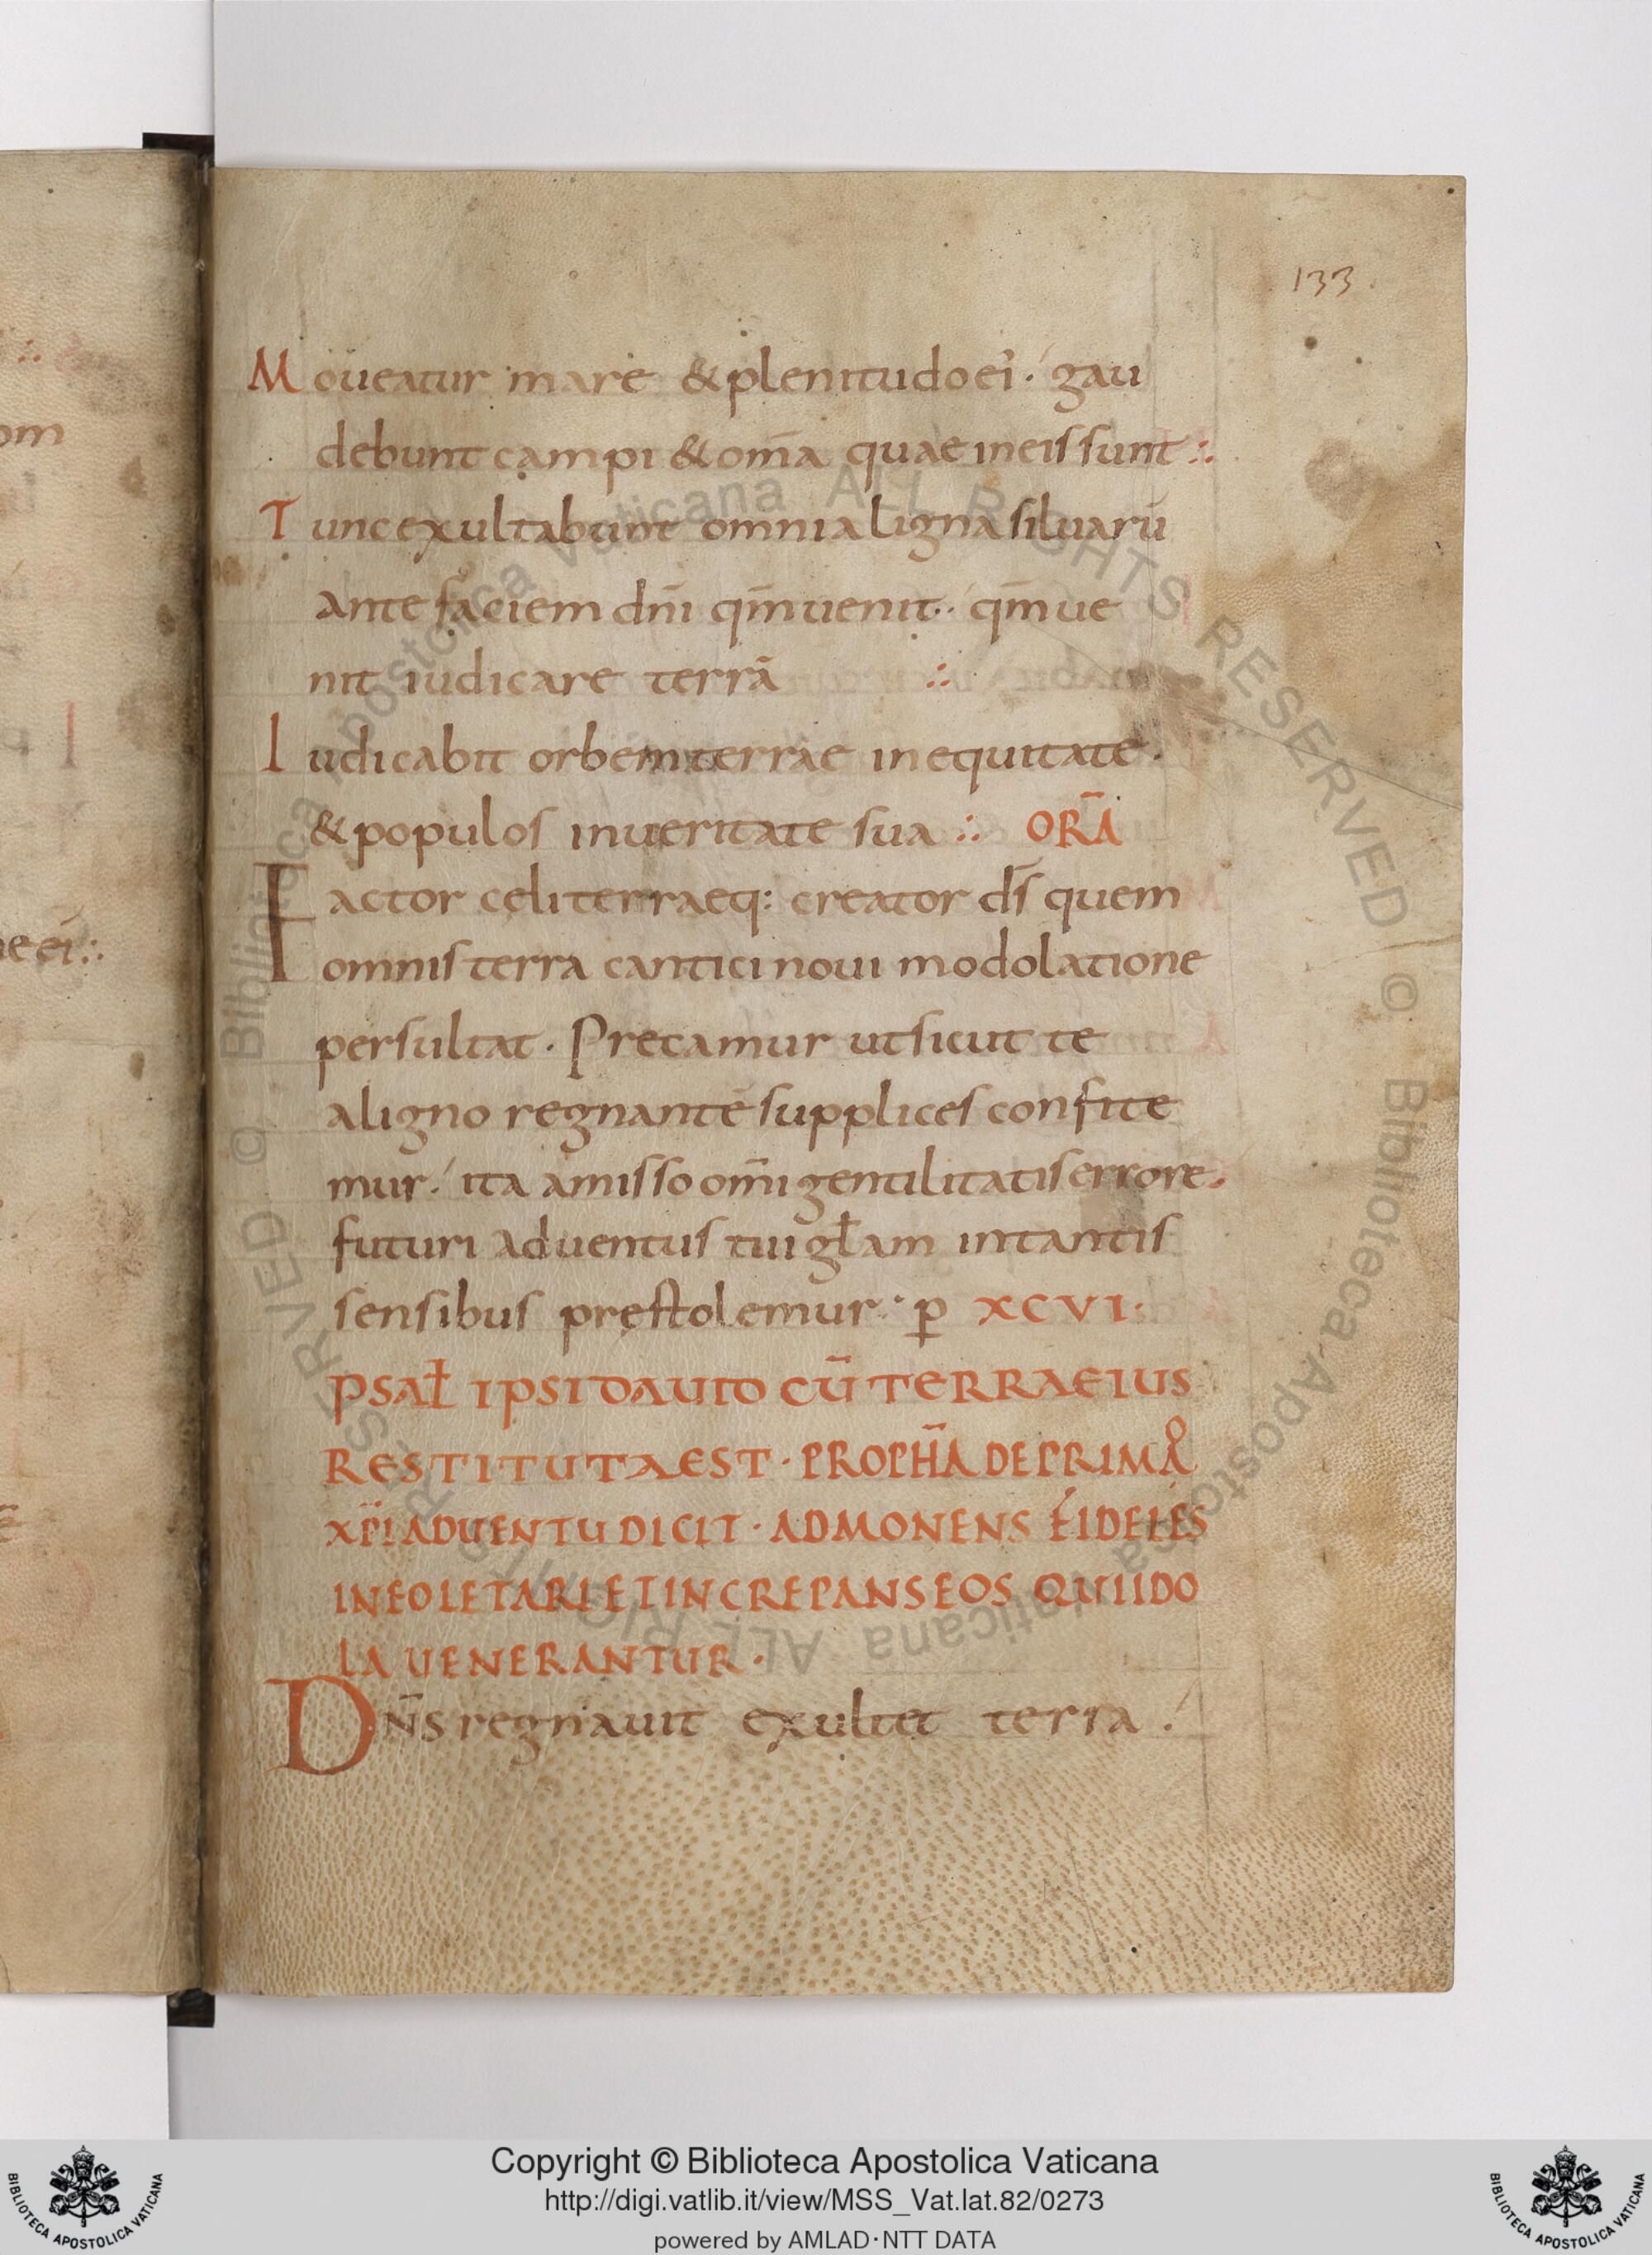 133.
Moueatur mare & plenitudo ei᾽. gau
debunt campi & om̄a quae in eis sunt :.
Tunc exultabunt omnia ligna siluarū
ante faciem dn̄i qm̄ uenit. qm̄ ue
nit iudicare terrā :.
Iudicabit orbem terrae in equitate.
& populos in ueritate sua :. ORA̅
Factor cęli terraeq: creator ds̄ quem
omnis terra cantici noui modolatione
persultat. Precamur ut sicut te
a ligno regnantē supplices confite
mur. ita amisso om̄i gentilitatis errore.
futuri aduentus tui gl̄am intantis
sensibus pręstolemur. p̱ XCVI.
PSAL̄ IPSI DAUID CŪ TERRA EIUS
RESTITUTA EST. PROPH̄A DE PRIMO
XP̄I ADUENTU DICIT. ADMONENS FIDELES
IN EO LETARI ET INCREPANS EOS QUI IDO
LA UENERANTUR.
DN̄S regnauit exultet terra.
om
ei :.
Copyright © Biblioteca Apostolica Vaticana
http://digi.vatlib.it/view/MSS_Vat.lat.82/0273
powered by AMLAD·NTT DATA
BIBLIOTECA APOSTOLICA VATICANA
BIBLIOTECA APOSTOLICA VATICANA
© Biblioteca Apostolica Vaticana ALL RIGHTS RESERVED © Biblioteca Apostolica Vaticana ALL RIGHTS RESERVED